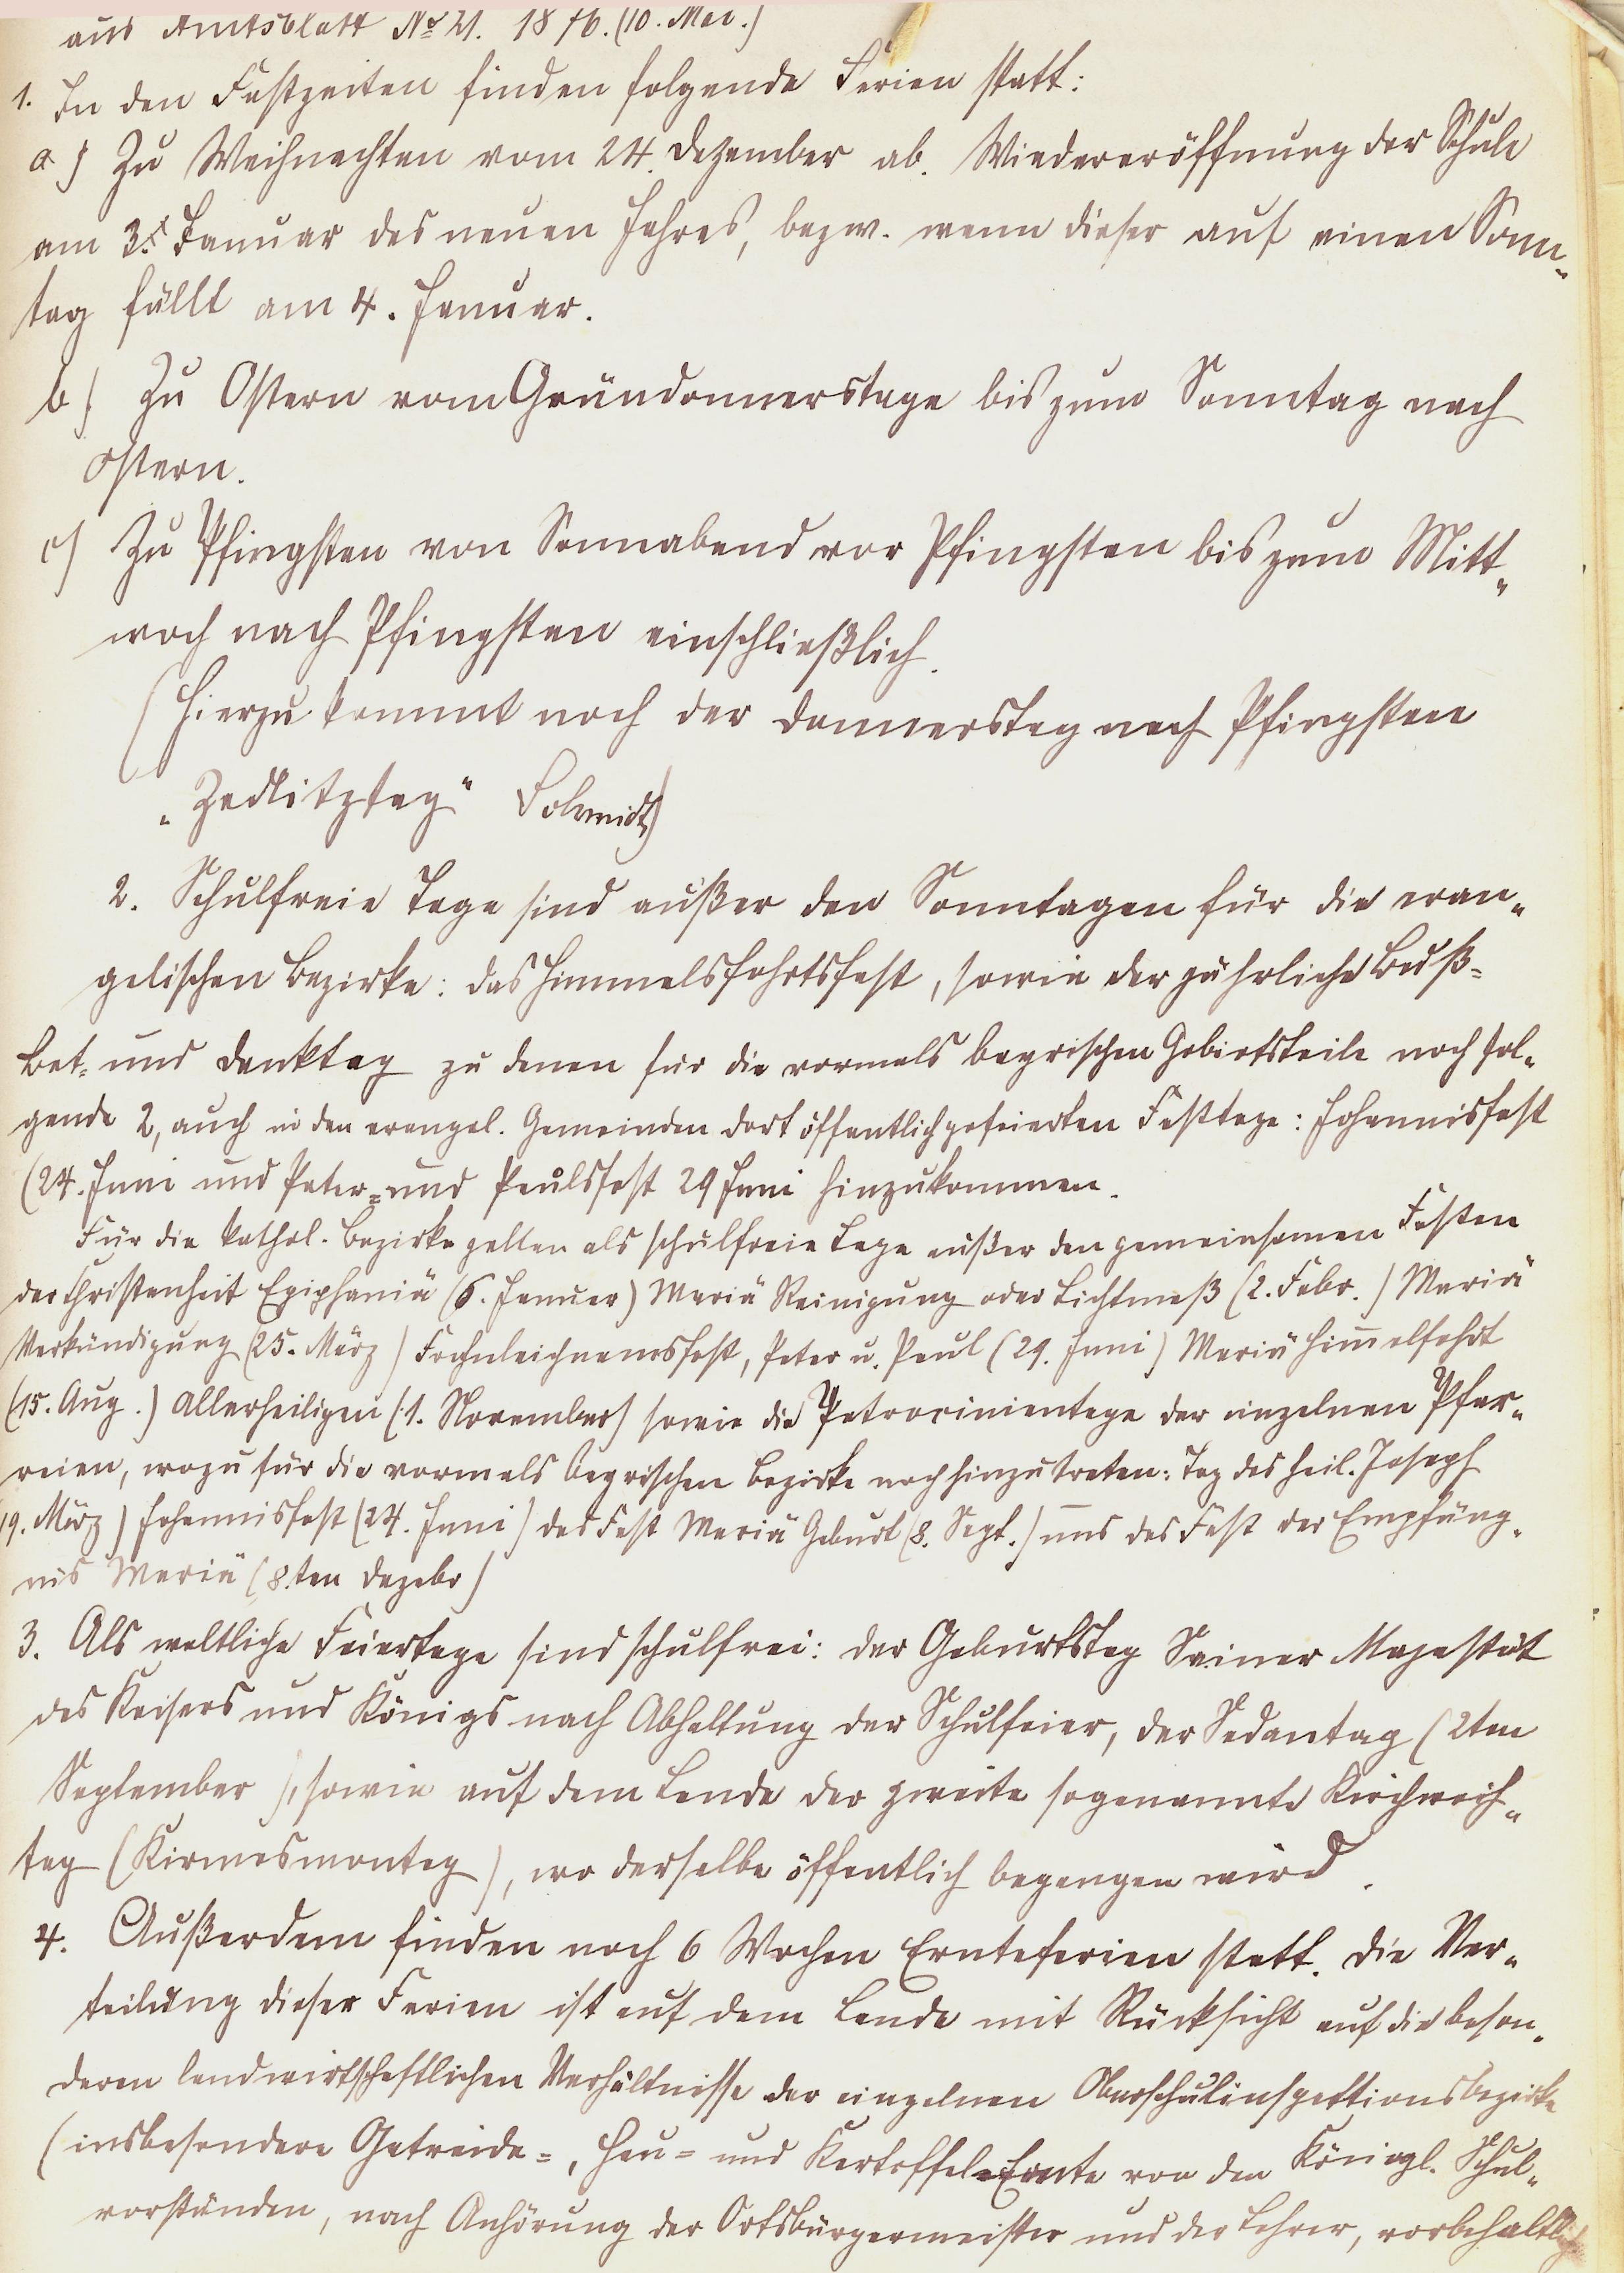 aus Amtsblatt No 21. 1876. (10. Mai.)
1. In den Festzeiten finden folgende Ferien statt:
a) Zu Weihnachten vom 24. Dezember ab. Wiedereröffnung der Schule
am 3t. Januar des neuen Jahres, bezw. wenn dieser auf einen Sonn-
tag fällt am 4. Januar.
b) Zu Ostern vom Gründonnerstage bis zum Sonntag nach
Ostern.
c) Zu Pfingsten von Sonnabend vor Pfingsten bis zum Mitt-
woch nach Pfingsten einschließlich.
(Hierzu kommt noch der Donnerstag nach Pfingsten
„Zedlitztag“ Schmidt)
2. Schulfreie Tage sind außer den Sonntagen für die evan-
gelischen Bezirke: das Himmelsfahrtsfest, sowie der jährliche Buß-
Bet- und Danktag zu denen für die vormals bayrischen Gebietsteile noch fol-
gende 2, auch in den evangel. Gemeinden dort öffentlich gefeierten Festtage: Johannisfest
(24. Juni und Peter- und Paulsfest 29 Juni hinzukommen.
Für die kathol. Bezirke gelten als schulfreie Tage außer den gemeinsamen Festen
der Christenheit Epiphaniä (6. Januar) Mariä Reinigung oder Lichtmeß (2. Febr.) Mariä
Verkündigung (25. März) Frohnleichnamsfest, Peter u. Paul (29. Juni) Mariä Himmelfahrt
(15. Aug.) Allerheiligen (1. November) sowie die Patrocinientage der einzelnen Pfar-
reien, wozu für die vormals bayrischen Bezirke noch hinzutreten: Tag des heil. Joseph
19. März) Johannisfest (24. Juni) das Fest Mariä Geburt (8. Sept.) und das Fest der Empfäng-
nis Mariä (8.ten Dezebr)
3. Als weltliche Feiertage sind schulfrei: der Geburtstag Seiner Majestät
des Kaisers und Königs nach Abhaltung der Schulfeier, der Sedantag (2ten
September), sowie auf dem Lande der zweite sogenannte Kirchweih-
tag (Kirmesmontag), wo derselbe öffentlich begangen wird.
4. Außerdem finden noch 6 Wochen Ernteferien statt. Die Ver-
teilung dieser Ferien ist auf dem Lande mit Rücksicht auf die beson-
deren landwirtschaftlichen Verhältnisse der einzelnen Oberschulinspektionsbezirke
(insbesondere Getreide-, Heu- und Kartoffel-Ernte von den Königl. Schul-
vorständen, nach Anhörung der Ortsbürgermeister und der Lehrer, vorbehaltlich